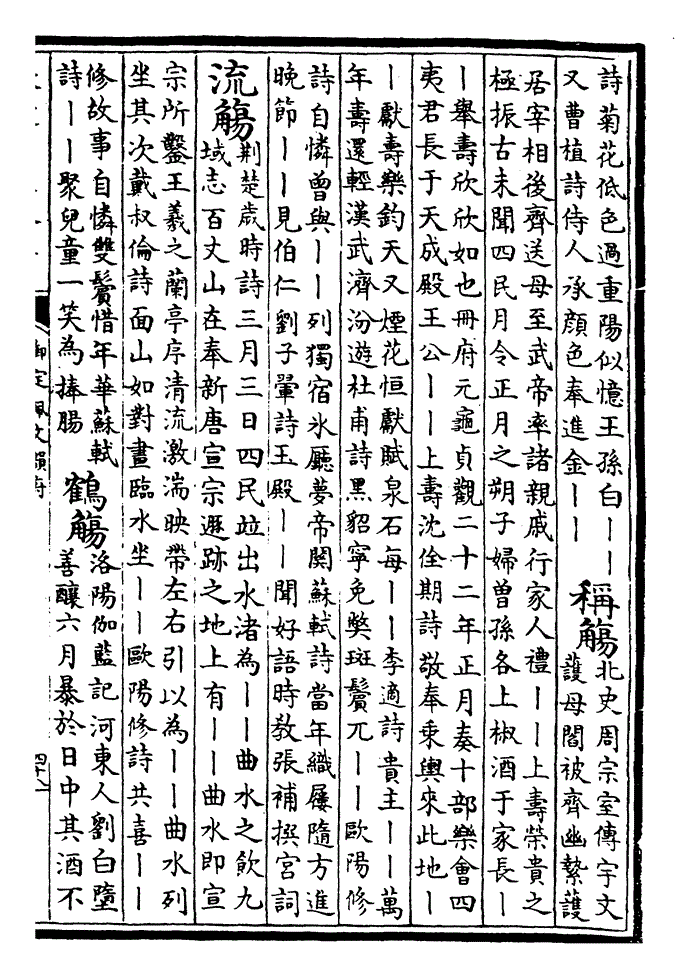 詩菊花低色過重陽似憶王孫白｜｜
又曹植詩侍人承顔色奉進金｜｜
稱觴
北史周宗室傳宇文
護母閻被齊幽縶護
居宰相後齊送母至武帝率諸親戚行家人禮｜｜上壽榮貴之
極振古未聞四民月令正月之朔子婦曾孫各上椒酒于家長｜
｜舉壽欣欣如也冊府元龜貞觀二十二年正月奏十部樂會四
夷君長于天成殿王公｜｜上壽沈佺期詩敬奉乘輿來此地｜
｜獻壽樂鈞天又煙花恒獻賦泉石每｜｜李適詩貴主｜｜萬
年壽還輕漢武濟汾遊杜甫詩黑貂寧免獘斑鬢兀｜｜歐陽修
詩自憐曾與｜｜列獨宿氷廳夢帝関蘇軾詩當年織屨隨方進
晚節｜｜見伯仁劉子翬詩玉殿｜｜聞好語時教張補撰宮詞
流觴
荆楚歲時詩三月三日四民竝出水渚為｜｜曲水之飲九
域志百丈山在奉新唐宣宗遯跡之地上有｜｜曲水即宣
宗所鑿王羲之蘭亭序清流激湍映帶左右引以為｜｜曲水列
坐其次戴叔倫詩面山如對畫臨水坐｜｜歐陽修詩共喜｜｜
修故事自憐雙鬢惜年華蘇軾
詩｜｜聚兒童一笑為捧腸
鶴觴
洛陽伽藍記河東人劉白墮
善釀六月暴於日中其酒不
御定佩文韻府